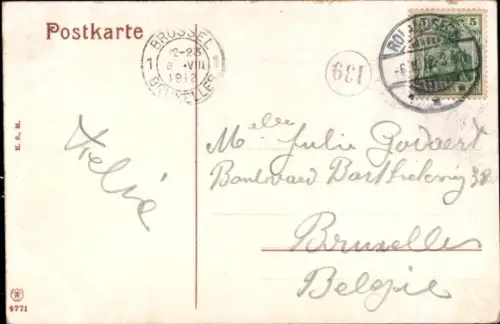 Postkarte
BRÜSSEL
1 12-25 1
8 -VIII
1912
BRUXELLES
139
5
M. S. M.
Felia
Melle Julie Govaert
Boulevard Barthelemy 38
Bruxelles
Belgie
4771